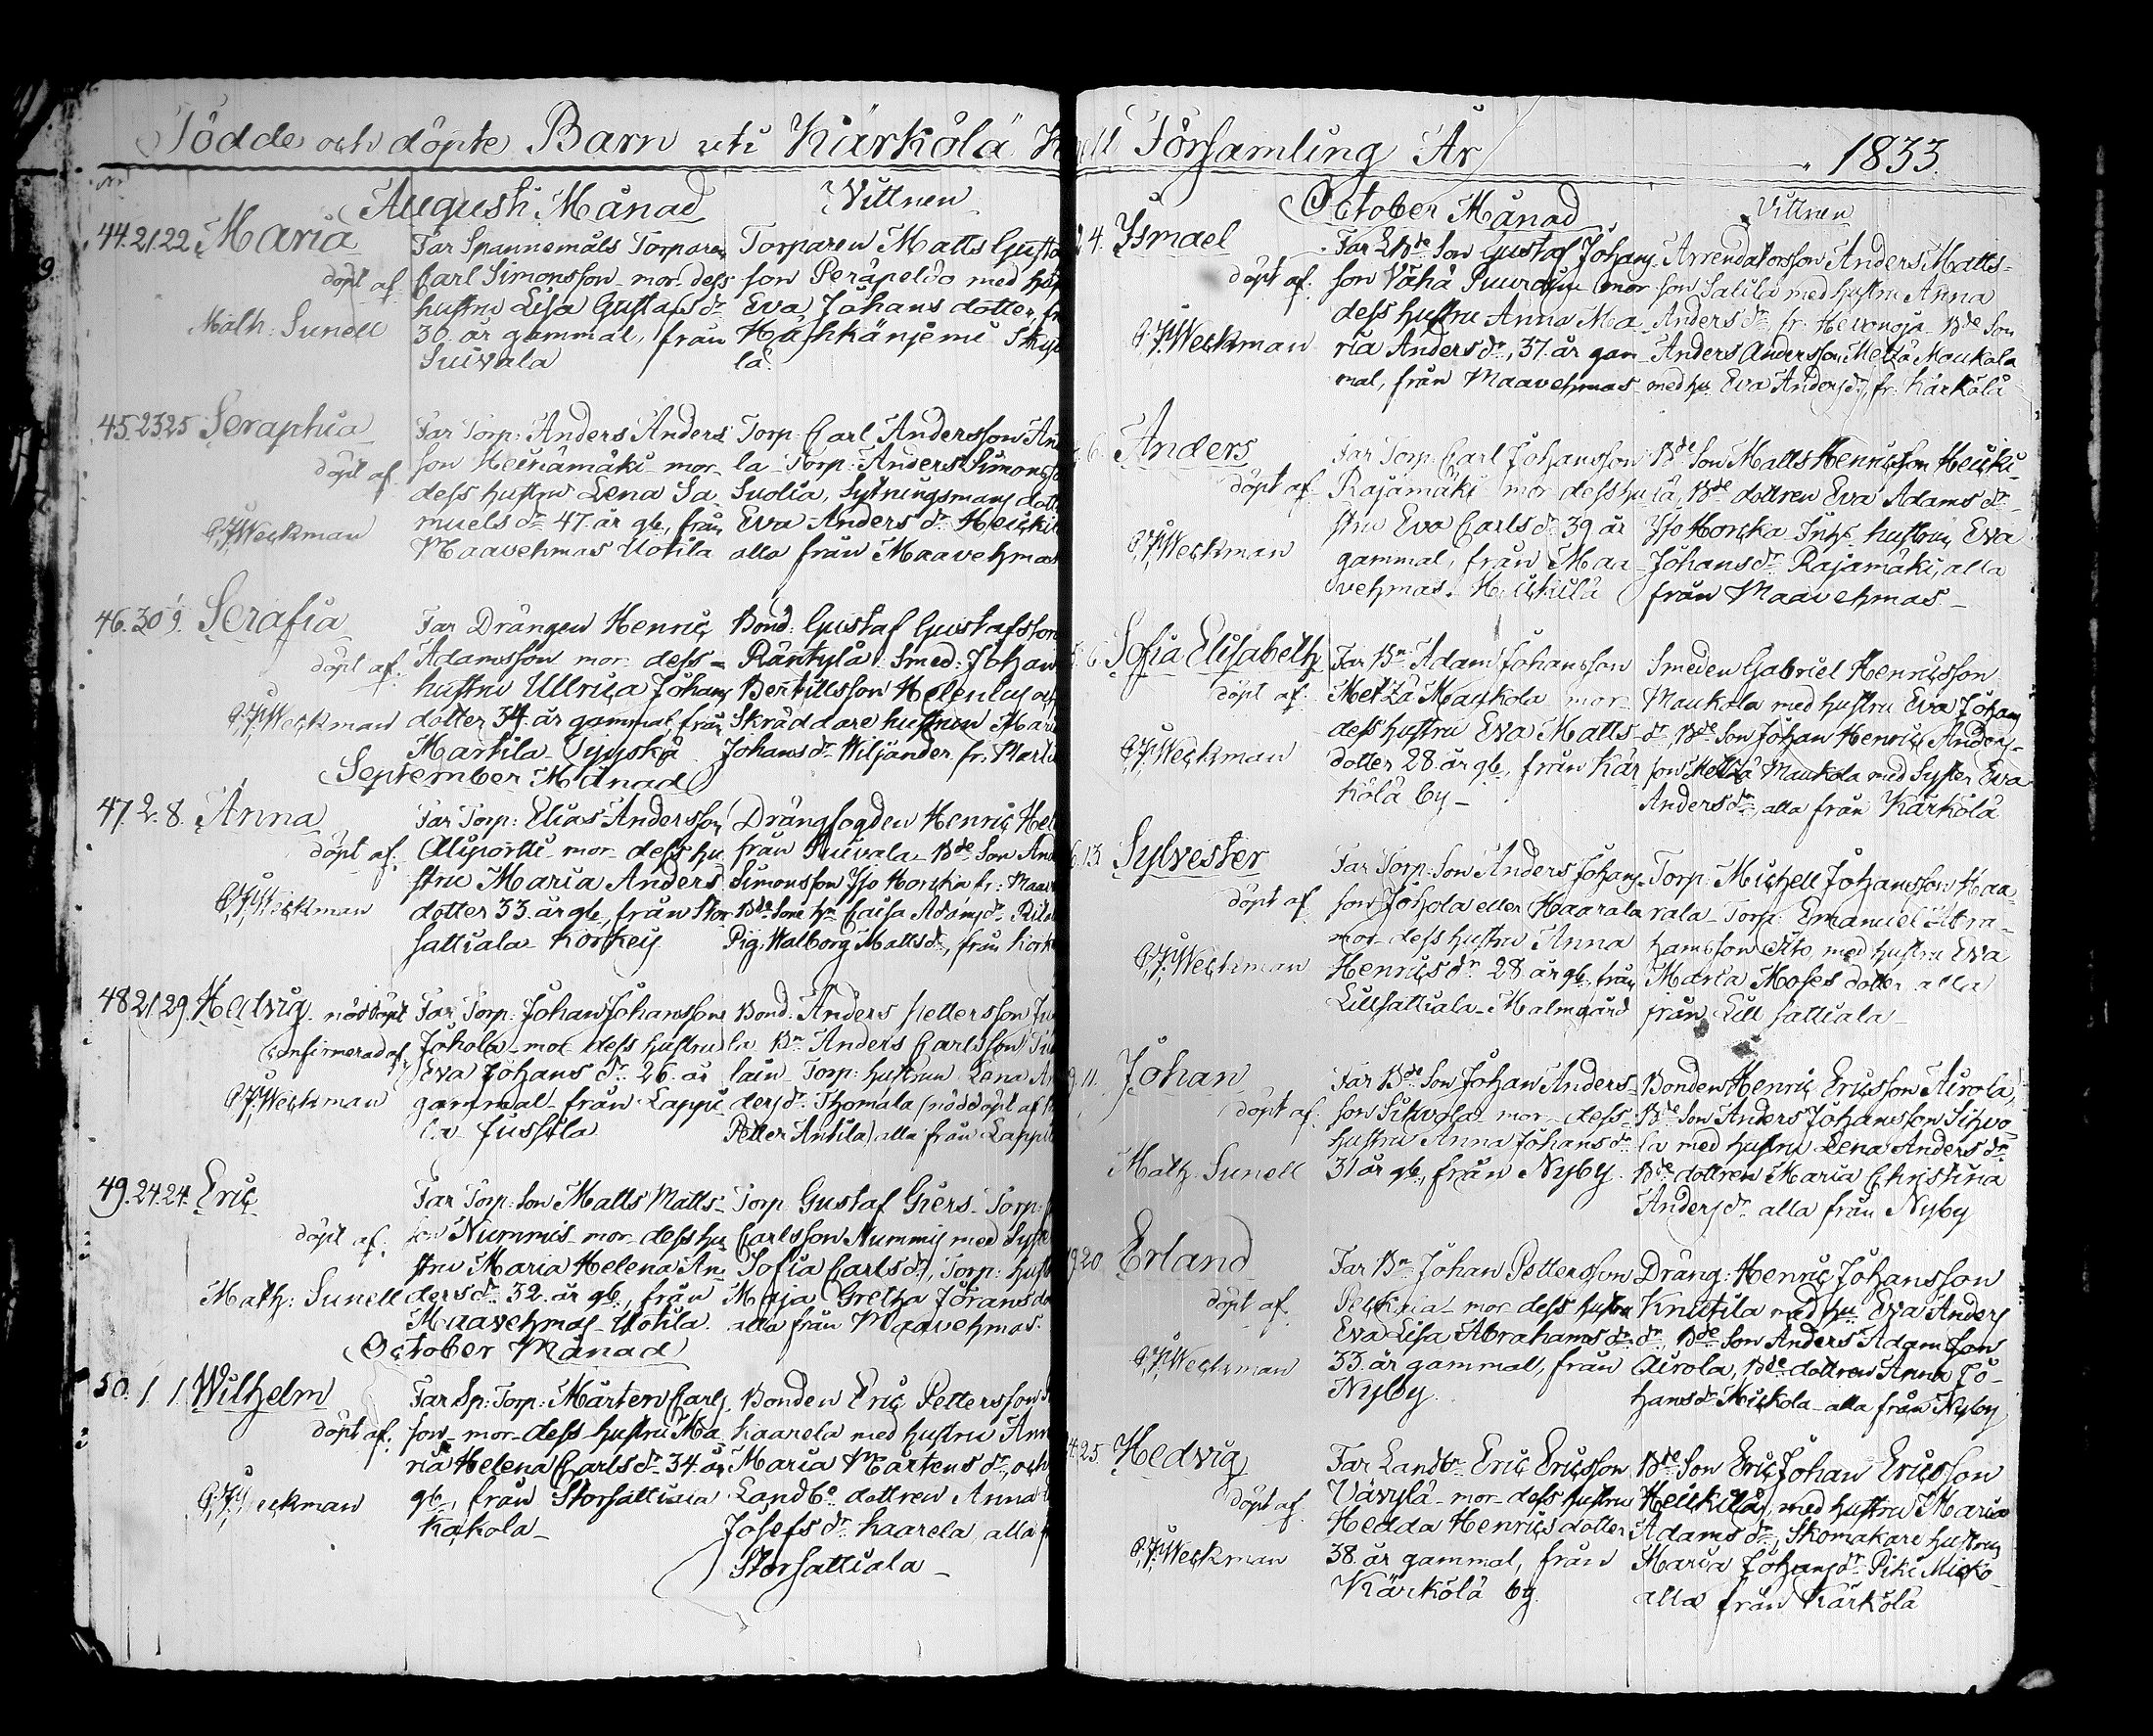 Födde och döpte Barn uti Kärkölä
Augusti Månad
Vittnen
44. 21. 22 Maria
döpt af
Math: Sunell
Far Spannemåls Torparen
Carl Simonsson mor dess
hustru Lisa Gustafs dr
30. år gammal, från
Suivala
Torparen Matts Gusta
son Peräpeldo med
Eva Johans dotter,
Hähkäniemi
lä.
45. 23 25 Seraphia
döpt af
Weckman
Far Torp: Anders Anders
son Heinämäki mor
dess hustru Lena Sa
muels dr 47. år gl., från
Maavehmas Uotila
Torp: Carl Andersson
la Torp: Anders Simons
Suolia, Sytningsmans
Eva Anders dr Heickil
alla från Maavehmas
46. 30 1/9. Serafia
döpt af.
Weckman
Far Drängen Henric
Adamsson mor dess
hustru Ullrica Johans
dotter 34. år gammal, från
Martila
Bond: Gustaf Gustafsson
Räntylä: Smed: Johan
Bertillsson Helenius
Skräddare hustrun
Johans dr Wiljander fr.
September Månad
47. 2. 8. Anna
döpt af.
Weckman
Far Torp: Elias Andersson
Aliportti mor dess hu
stru Maria Anders
dotter 33. år gl., från Stor
sattiala Korkey
Drängfogden Henric
från Suivala Bde Son
Simonsson Iso Horska fr:
Bde Sons Caisa Adams dr
Pig: Walborg Matts dr, från
48 21 29. Hedvig nöddöpt
confirmerad af
Weckman
Far Torp: Johan Johansson
Johola mor dess hustru
Eva Johans dr 26. år
gammal från Lappi
la Jussila
Bond: Anders Pettersson
la Bn Anders Carlsson
lain Torp: hustrun Lena
ders dr Thomala (nöddöpt af
Petter Antila) alla från
49. 24 24. Eric
döpt af.
Math: Sunell
Far Torp: Son Matts Matts
son Nummis mor dess hu
stru Maria Helena An
ders dr 32. år gl., från
Maavehmas Uotila.
Torp: Gustaf Giers Torp:
Carlsson Nummis med
Sofia Carls dr, Torp:
Maja Gretha Jörans
alla från Maavehmas.
October Månad
50. 1. 1. Wilhelm
döpt af.
Weckman
Far Sp: Torp: Mårten Carls
son mor dess hustru Ma
ria Helena Carls dr 34. år
gl., från Storsattiala
Kakola
Bonden Eric Pettersson
Kaarela med hustru
Maria Mårtens dr, och
Landbo dottren Anna
Josefs dr Kaarela, alla
Storsattiala
Församling År 1833.
October Månad
Vittnen
4. Ismael
döpt af.
Weckman
Far Son Gustaf Johans
son Vähä mor
dess hustru Anna Ma
ria Anders dr, 37. år gam
mal, från Maavehmas
Arrendatorsson Anders Matts
son Salila med hustru Anna
Anders dr, fr. Hevonoja Bde Son
Anders Andersson Metzä Maukola
med hu. Eva Anders dr, fr. Kärkölä
6. Anders
döpt af
Weckman
Far Torp: Carl Johansson
Rajamäki mor dess hu
stru Eva Carls dr 39 år
gammal, från Maa
vehmas. Heickilä
Bde Son Matts Henricsson Heicki
lä, Bde dottren Eva Adams dr
Iso Horska Inhs hustrun Eva
Johans dr Rajamäki, alla
från Maavehmas
6. Sofia Elisabeth
döpt af.
Weckman
Far Bn Adam Johansson
Metzä Maukola mor
dess hustru Eva Matts
dotter 28. år gl., från Kär
kölä by
Smeden Gabriel Henricsson
Maukola med hustru Eva Johans
dr, Bde Son Johan Henric Anders
son Metzä Maukola med Syster Eva
Anders dr, alla från Kärkölä
13 Sylvester
döpt af
Weckman
Far Torp: Son Anders Johans
son Johola eller Haarala
mor dess hustru Anna
Henrics dr 28. år gl., från
Lillsattiala Malmgård
Torp: Michell Johansson Haa
rala Torp: Emanuel Abra
hamsson med hustru Eva
Maria Moses dotter alla
från Lill sattiala
11. Johan
döpt af.
Math. Sunell
Far Bde Son Johan Anders
son Sihvola mor dess
hustru Anna Johans dr
31 år gl., från Nyby.
Bonden Henric Ericsson Airola,
Bde Son Anders Johansson Sihvo
la med hustru Lena Anders dr
Bde dottren Maria Christina
Anders dr alla från Nyby
20 Erland
döpt af.
Weckman
Far Bn Johan Pettersson
mor dess hustru
Eva Lisa Abrahams dr
33. år gammal, från
Nyby.
Dräng: Henric Johansson
Knutila med hu. Eva Anders
dr, Bde Son Anders Adamsson
Airola, Bde dottren Anna Jo
hans dr Mickola alla från Nyby
25. Hedvig
döpt af
Weckman
Far Landbn Eric Ericsson
Väkylä mor dess hustru
Hedda Henrics dotter
38. år gammal, från
Kärkölä by.
Bde Son Eric Johan Ericsson
Heickilä, med hustru Maria
Adams dr, Skomakare hustrun
Maria Johans dr Piki Micko
alla från Kärkölä